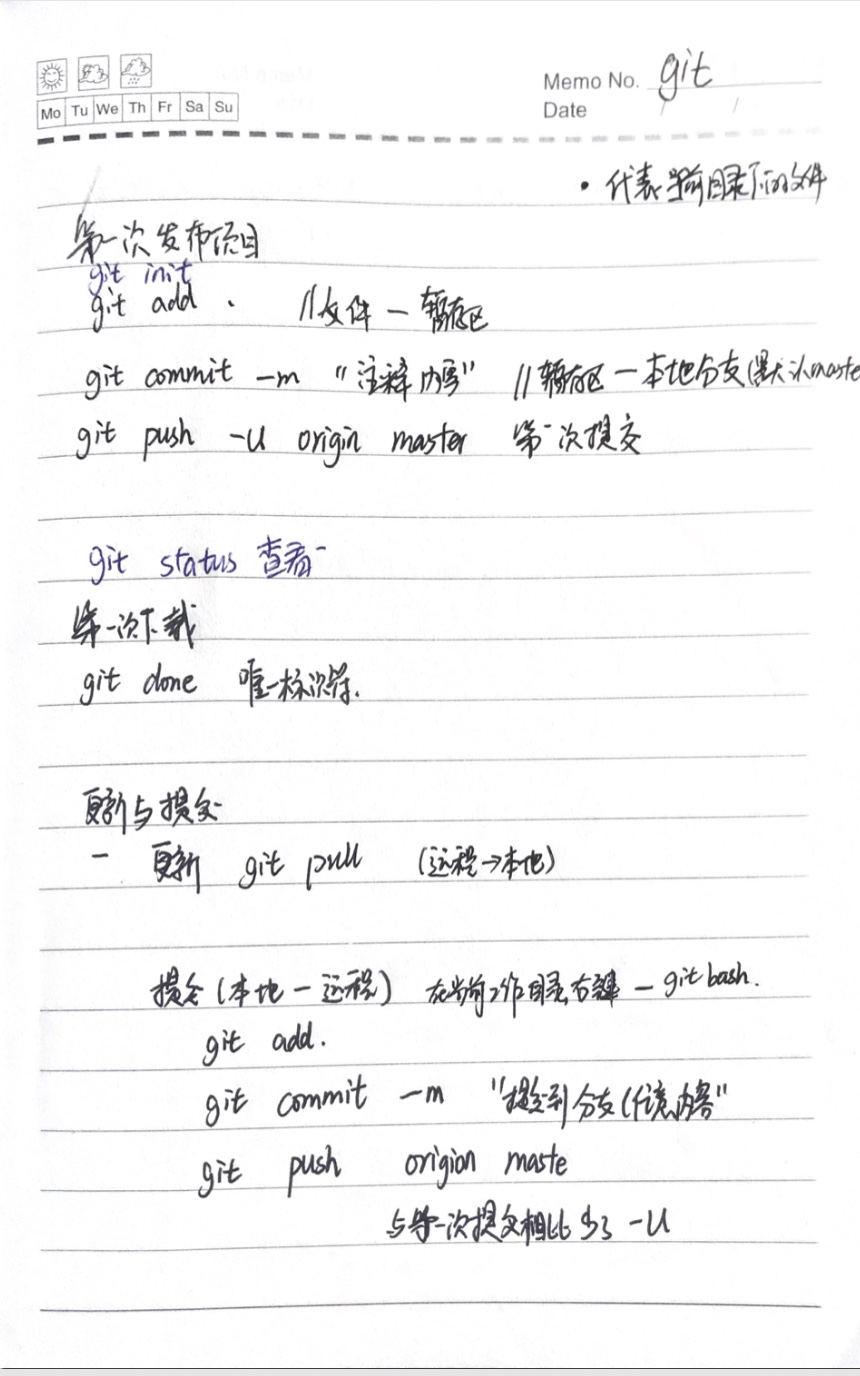 Memo No. git
Mo Tu We Th Fr Sa Su
Date / /
· 代表当前目录下的文件
第一次发布项目
git init
git add . //文件 — 暂存区
git commit -m "注释内容" //暂存区 — 本地分支(默认maste
git push -u origin master 第一次提交
git status 查看
第一次下载
git clone 唯一标识符.
更新与提交
- 更新 git pull (远程→本地)
提交(本地 — 远程) 在当前工作目录右键 — git bash.
git add.
git commit -m "提交到分支(任意内容"
git push origion maste
与第一次提交相比少了 -u